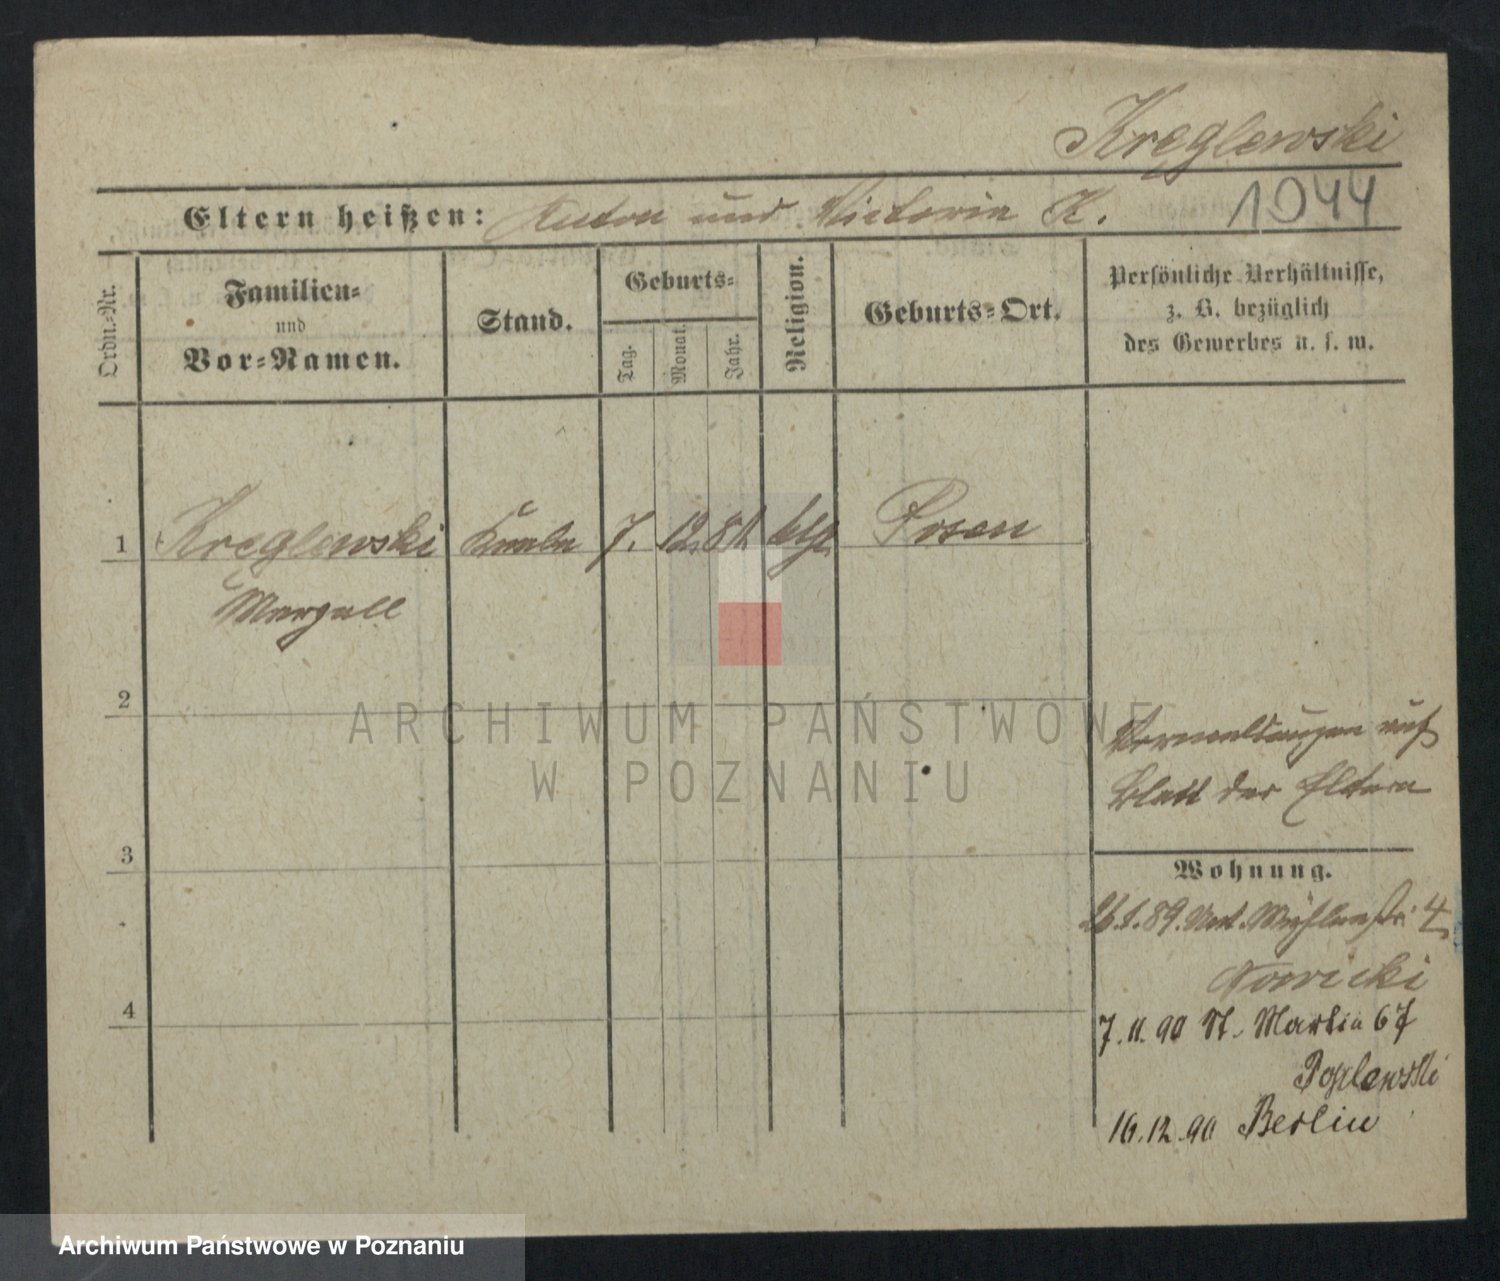 Kreglewski
1044
Eltern heißen: Anton und Victoria K.
Ordn.-Nr.
Familien-
und
Vor-Namen.
Stand.
Geburts-
Tag.
Monat.
Jahr.
Religion.
Geburts-Ort.
Persönliche Verhältnisse,
z. B. bezüglich
des Gewerbes u. s. w.
1 Kreglewski 7. 12. ktḥ. Posen
2
3
4
ARCHIWUM PAŃSTWOWE
W POZNANIU
Vermeldungen auf
Blatt der Eltern
Wohnung.
26.1.89. Unt. Mühlenstr. 4
Nowicki
7.11.90 St. Martin 67
Poplewski
16.12.90 Berlin
Archiwum Państwowe w Poznaniu